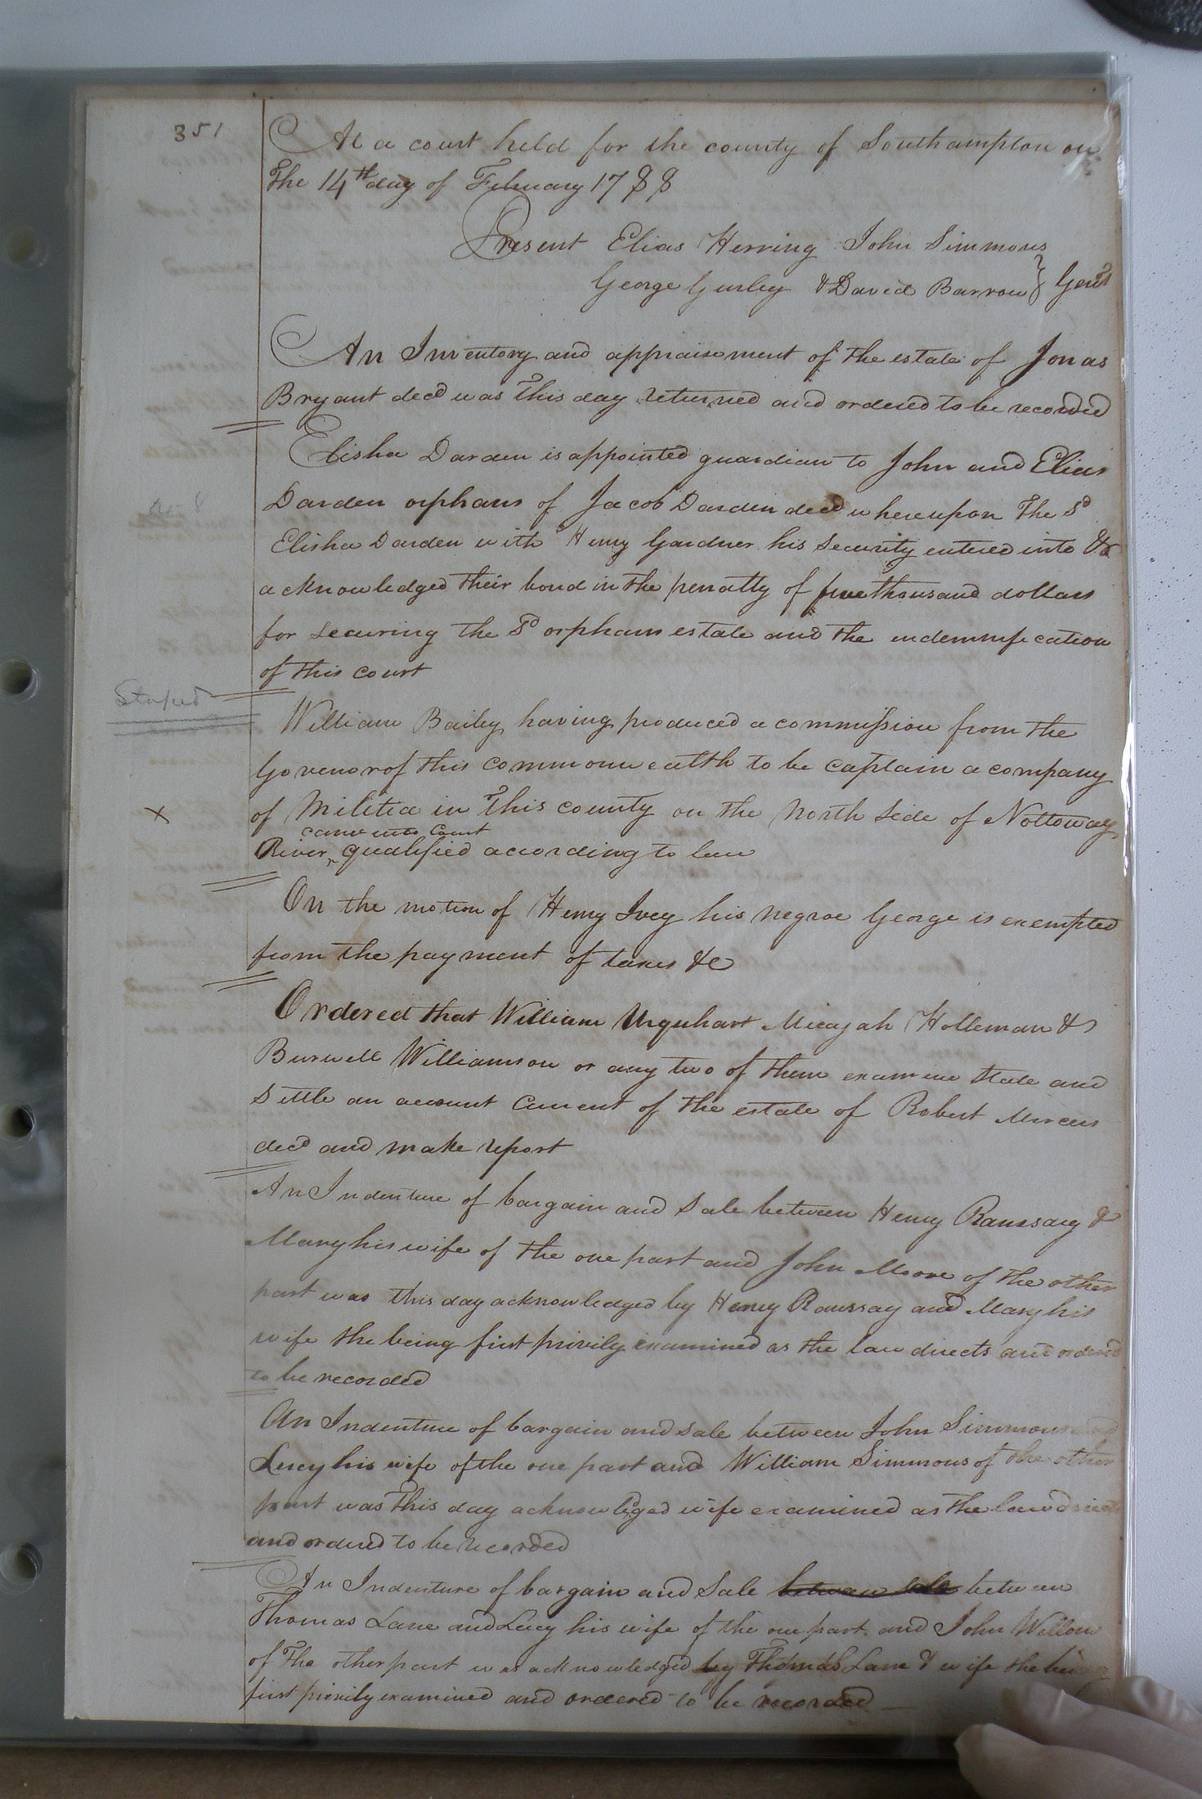 351
At a court held for the county of Southampton on
The 14th day of February 1788
Present Elias Herring John Simmons
George Gurley & David Barrow } Gent
An Inventory and appraisement of the estate of Jonas
Bryant decd was This day returned and ordered to be recorded
Elisha Darden is appointed guardian to John and Elias
Darden orphans of Jacob Darden decd whereupon The Sd
Elisha Darden with Henry Gardner his security entered into &
acknowledged their bond in the penalty of five thousand dollars
for securing the Sd orphans estate and the indemnification
of this court
William Bailey having produced a commission from the
Govenor of this commonwealth to be captain a company
X
of Militia in This county on the North side of Nottoway
came into Court
River ^ qualified according to law
On the motion of Henry Ivey his negroe George is exempted
from the payment of taxes &c
Ordered that William Urquhart Micajah Holleman &
Burwell Williamson or any two of them examine state and
Settle an account Current of the estate of Robert
decd and make report
An Indenture of bargain and Sale between Henry &
Mary his wife of the one part and John Moore of the other
part was this day acknowledged by Henry and Mary his
wife She being first privily examined as the law directs and ordered
to be recorded
An Indenture of bargain and sale between John Simmons and
Lucy his wife of the one part and William Simmons of the other
part was This day acknowlged wife examined as the law directs
and ordered to be recorded
An Indenture of bargain and Sale between sale between
Thomas Lane and Lucy his wife of the one part and John
of The other part was acknowledged by Thomas Lane & wife She being
first privily examined and ordered to be recorded